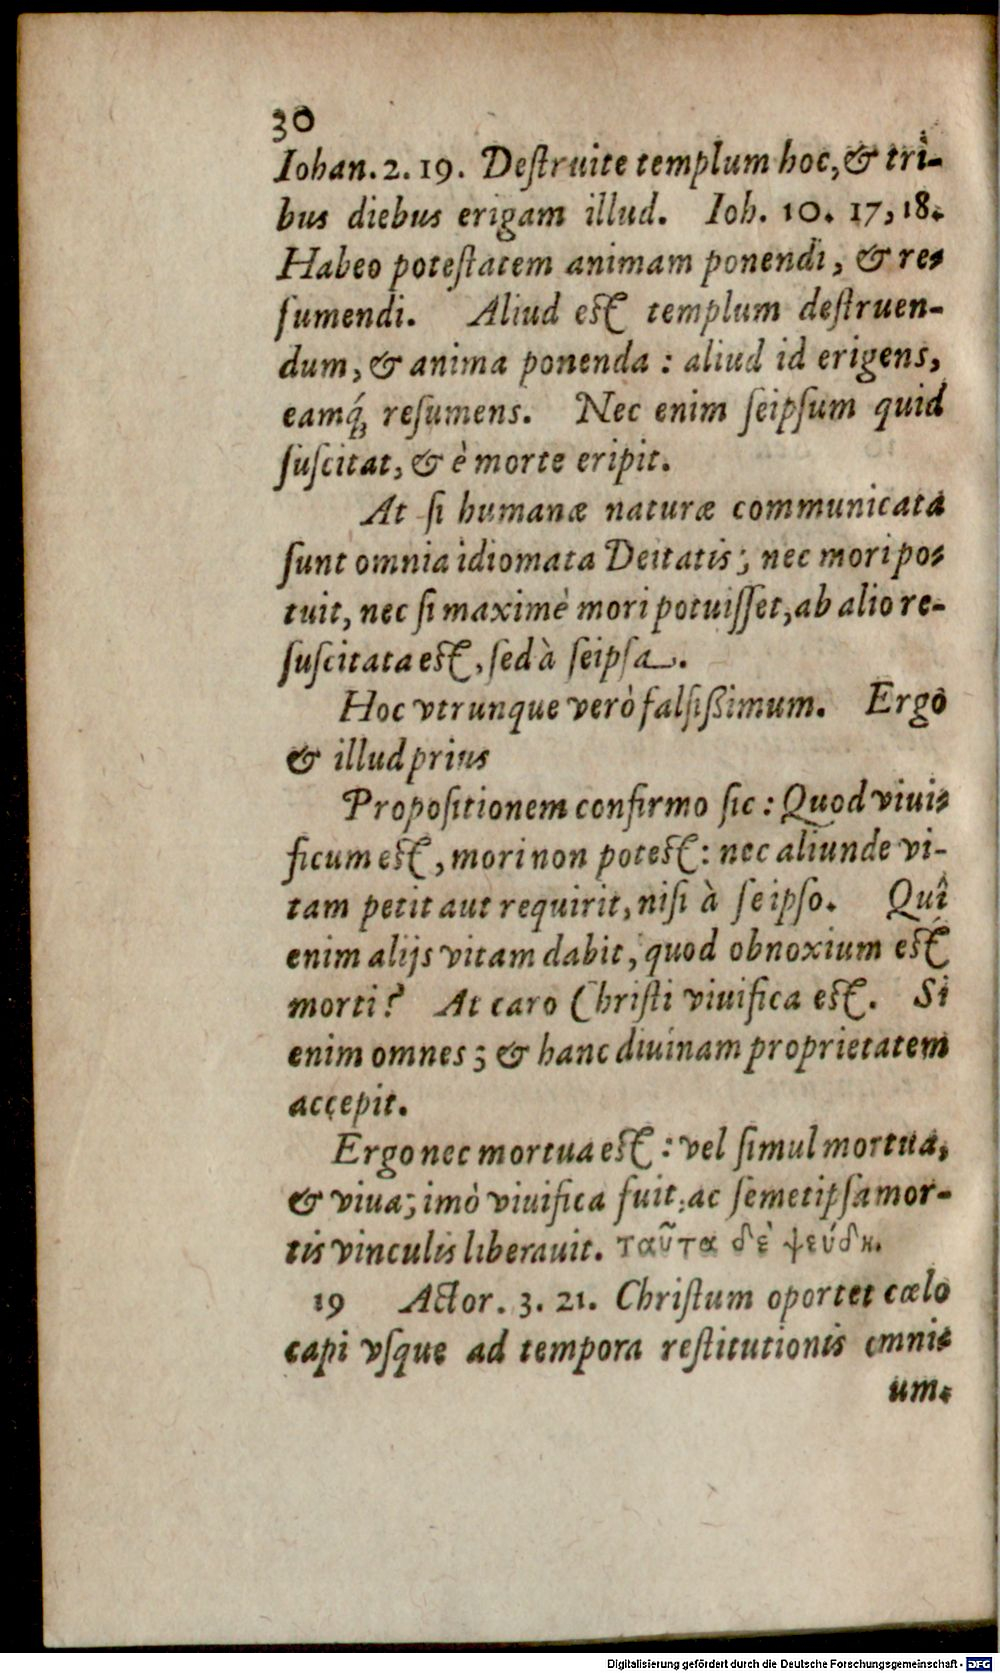 30
Iohan. 2. 19. Deſtruite templum hoc, & tri-
bus diebus erigam illud. Ioh. 10. 17, 18.
Habeo poteſtatem animam ponendi, & re-
ſumendi. Aliud eſt templum deſtruen-
dum, & anima ponenda : aliud id erigens,
eamq́; reſumens. Nec enim ſeipſum quid
ſuſcitat, & è morte eripit.
At ſi humanæ naturæ communicata
ſunt omnia idiomata Deitatis; nec mori po-
tuit, nec ſi maximè mori potuiſſet, ab alio re-
ſuſcitata eſt, ſed à ſeipſa.
Hoc vtrunque verò falſiſsimum. Ergo
& illud prius
Propoſitionem confirmo ſic : Quod viui-
ficum eſt, mori non poteſt : nec aliunde vi-
tam petit aut requirit, niſi à ſeipſo. Quî
enim alijs vitam dabit, quod obnoxium eſt
morti? At caro Chriſti viuifica eſt. Si
enim omnes; & hanc diuinam proprietatem
accepit.
Ergo nec mortua eſt : vel ſimul mortua,
& viua; imò viuifica fuit, ac ſemetipſa mor-
tis vinculis liberauit. ταῦτα δὲ ψεύδη.
19 Actor. 3. 21. Chriſtum oportet cœlo
capi vſque ad tempora reſtitutionis omni-
um.
Digitalisierung gefördert durch die Deutsche Forschungsgemeinschaft - DFG